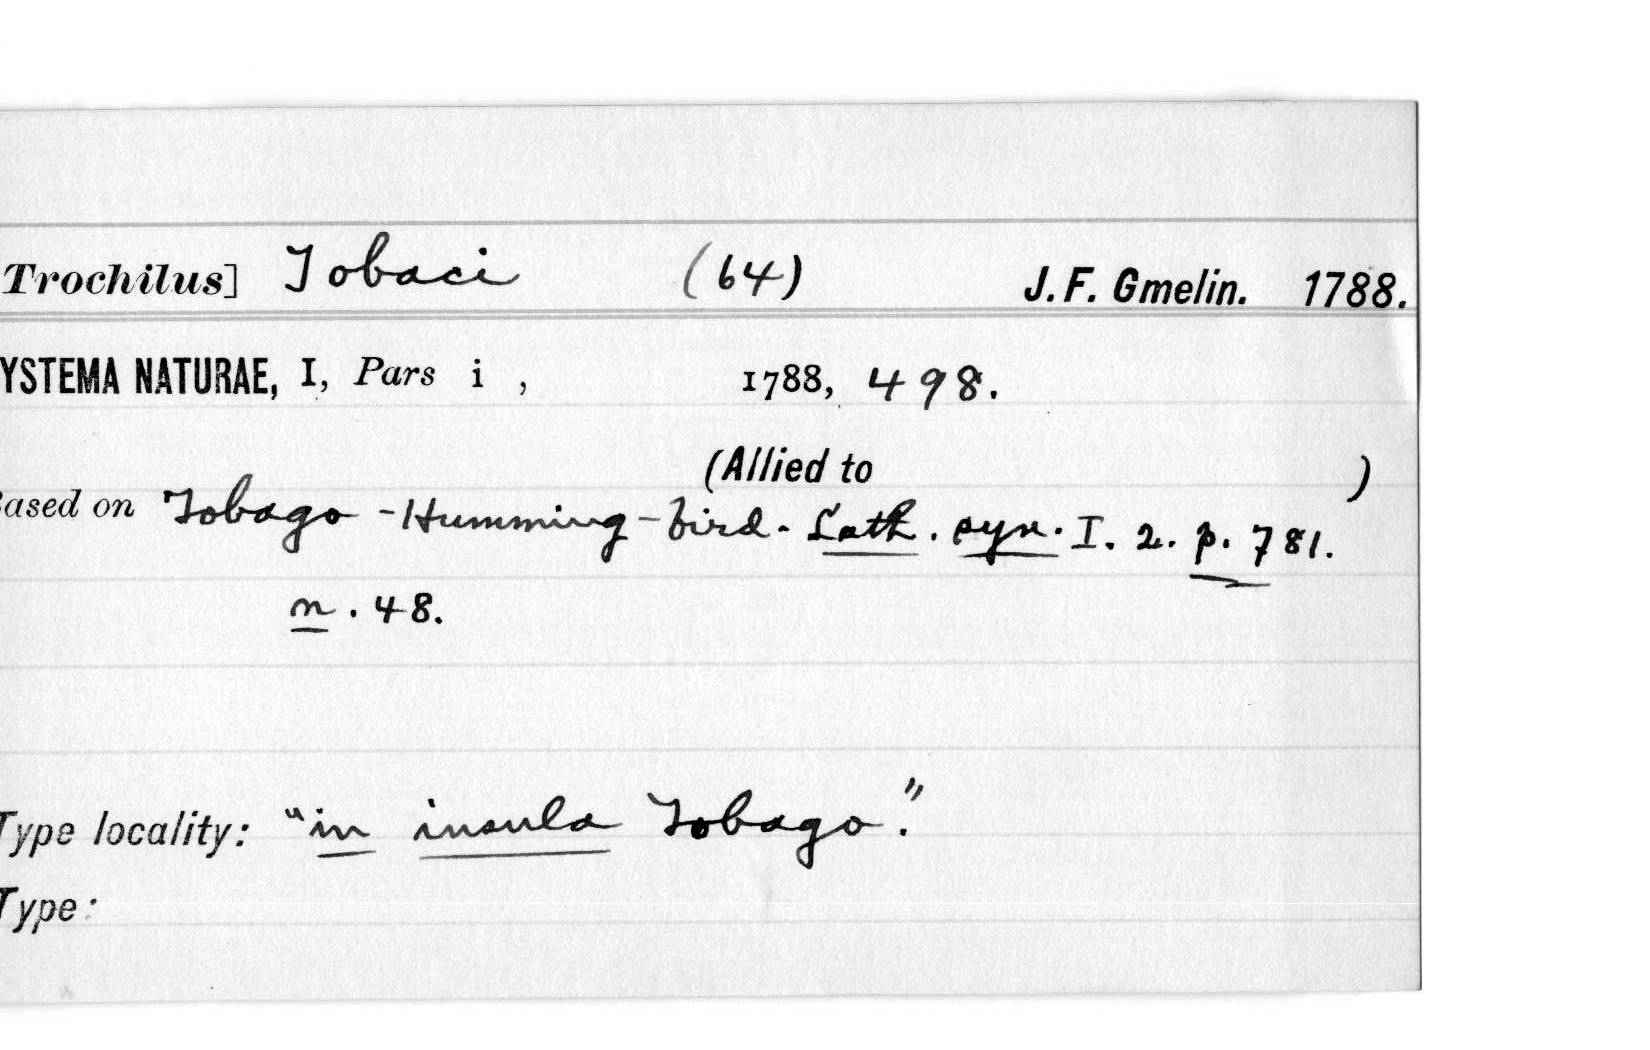 Trochilus] Tobaci (64) J. F. Gmelin. 1788.
YSTEMA NATURAE, I, Pars i , 1788, 498.
(Allied to )
ased on Tobago-Humming-bird. Lath. syn. I. 2. p. 781.
n. 48.
Type locality: "in insula Tobago."
Type: